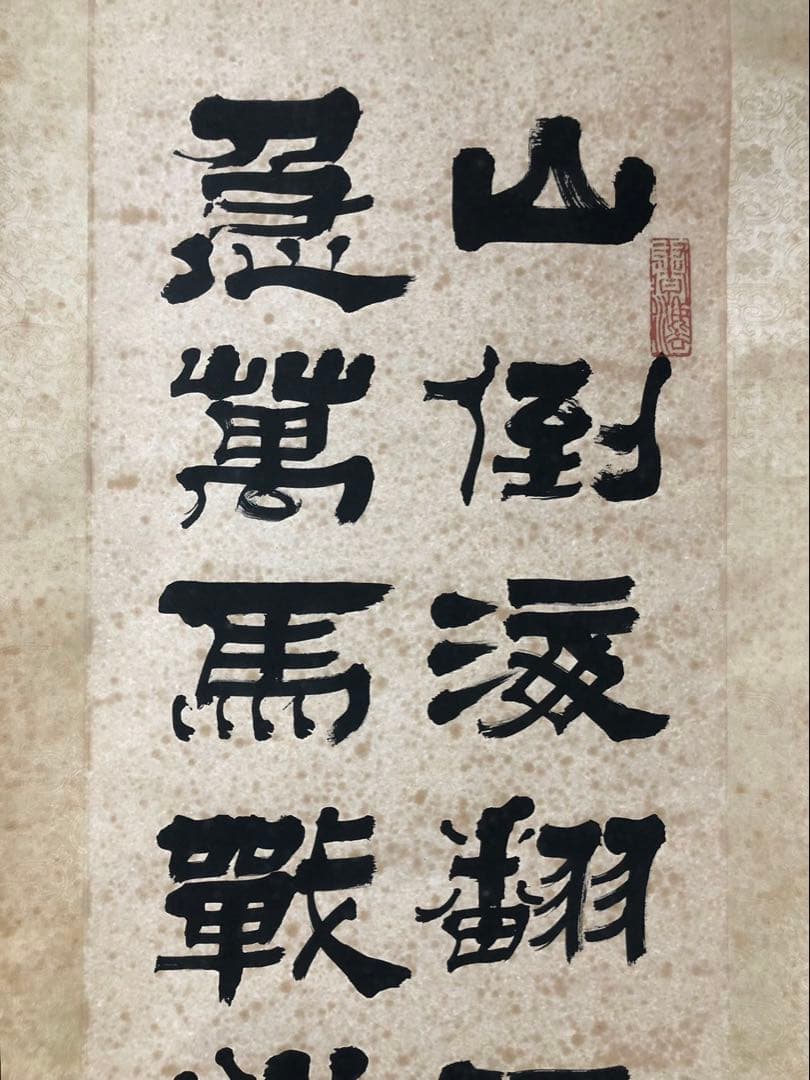 山倒海翻
急萬馬戰